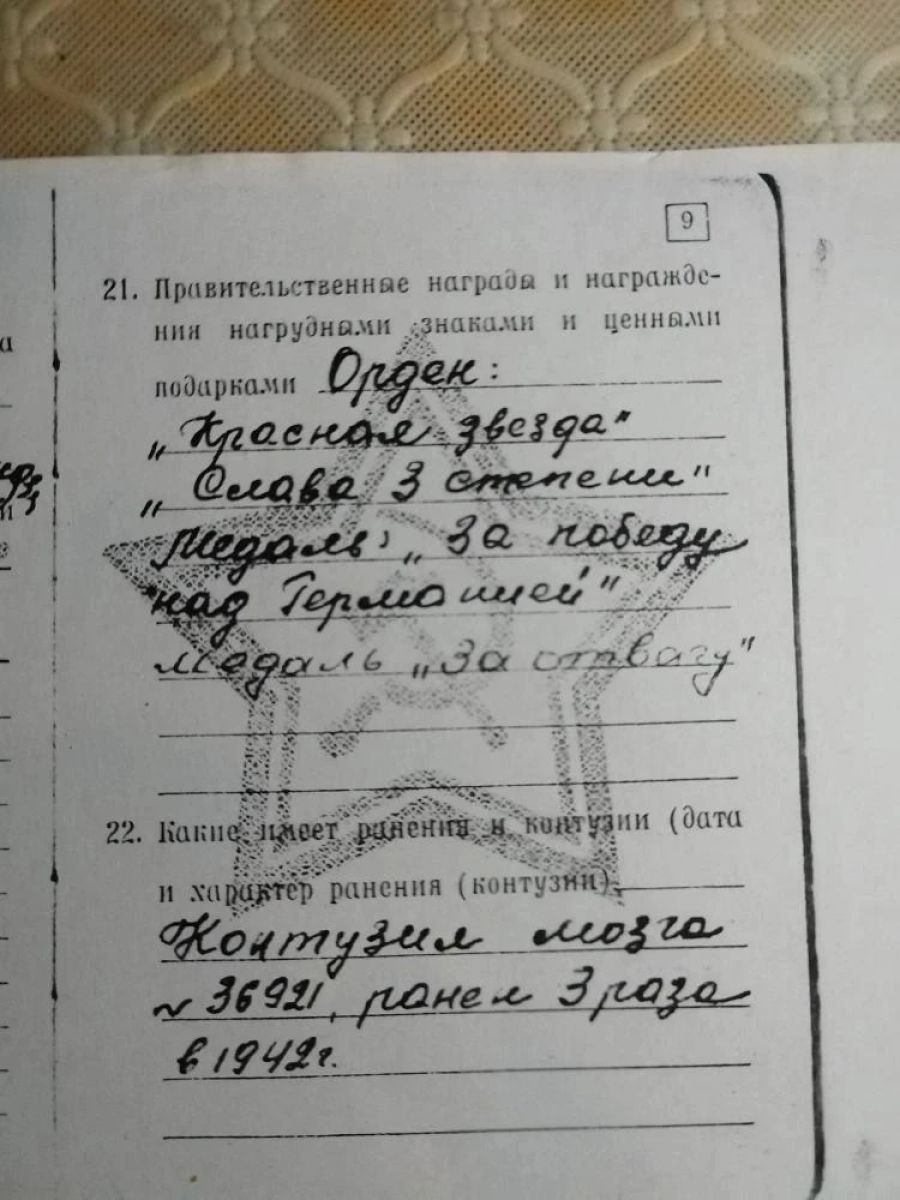 9
21. Правительственные награды и награжде-
ния нагрудными знаками и ценными
подарками Орден:
„Красная звезда"
„Слава 3 степени"
Медаль: „За победу
над Германией"
Медаль „За отвагу"
22. Какие имеет ранения и контузии (дата
и характер ранения (контузии)
Контузия мозга
N 36921, ранен 3 раза
в 1942 г.